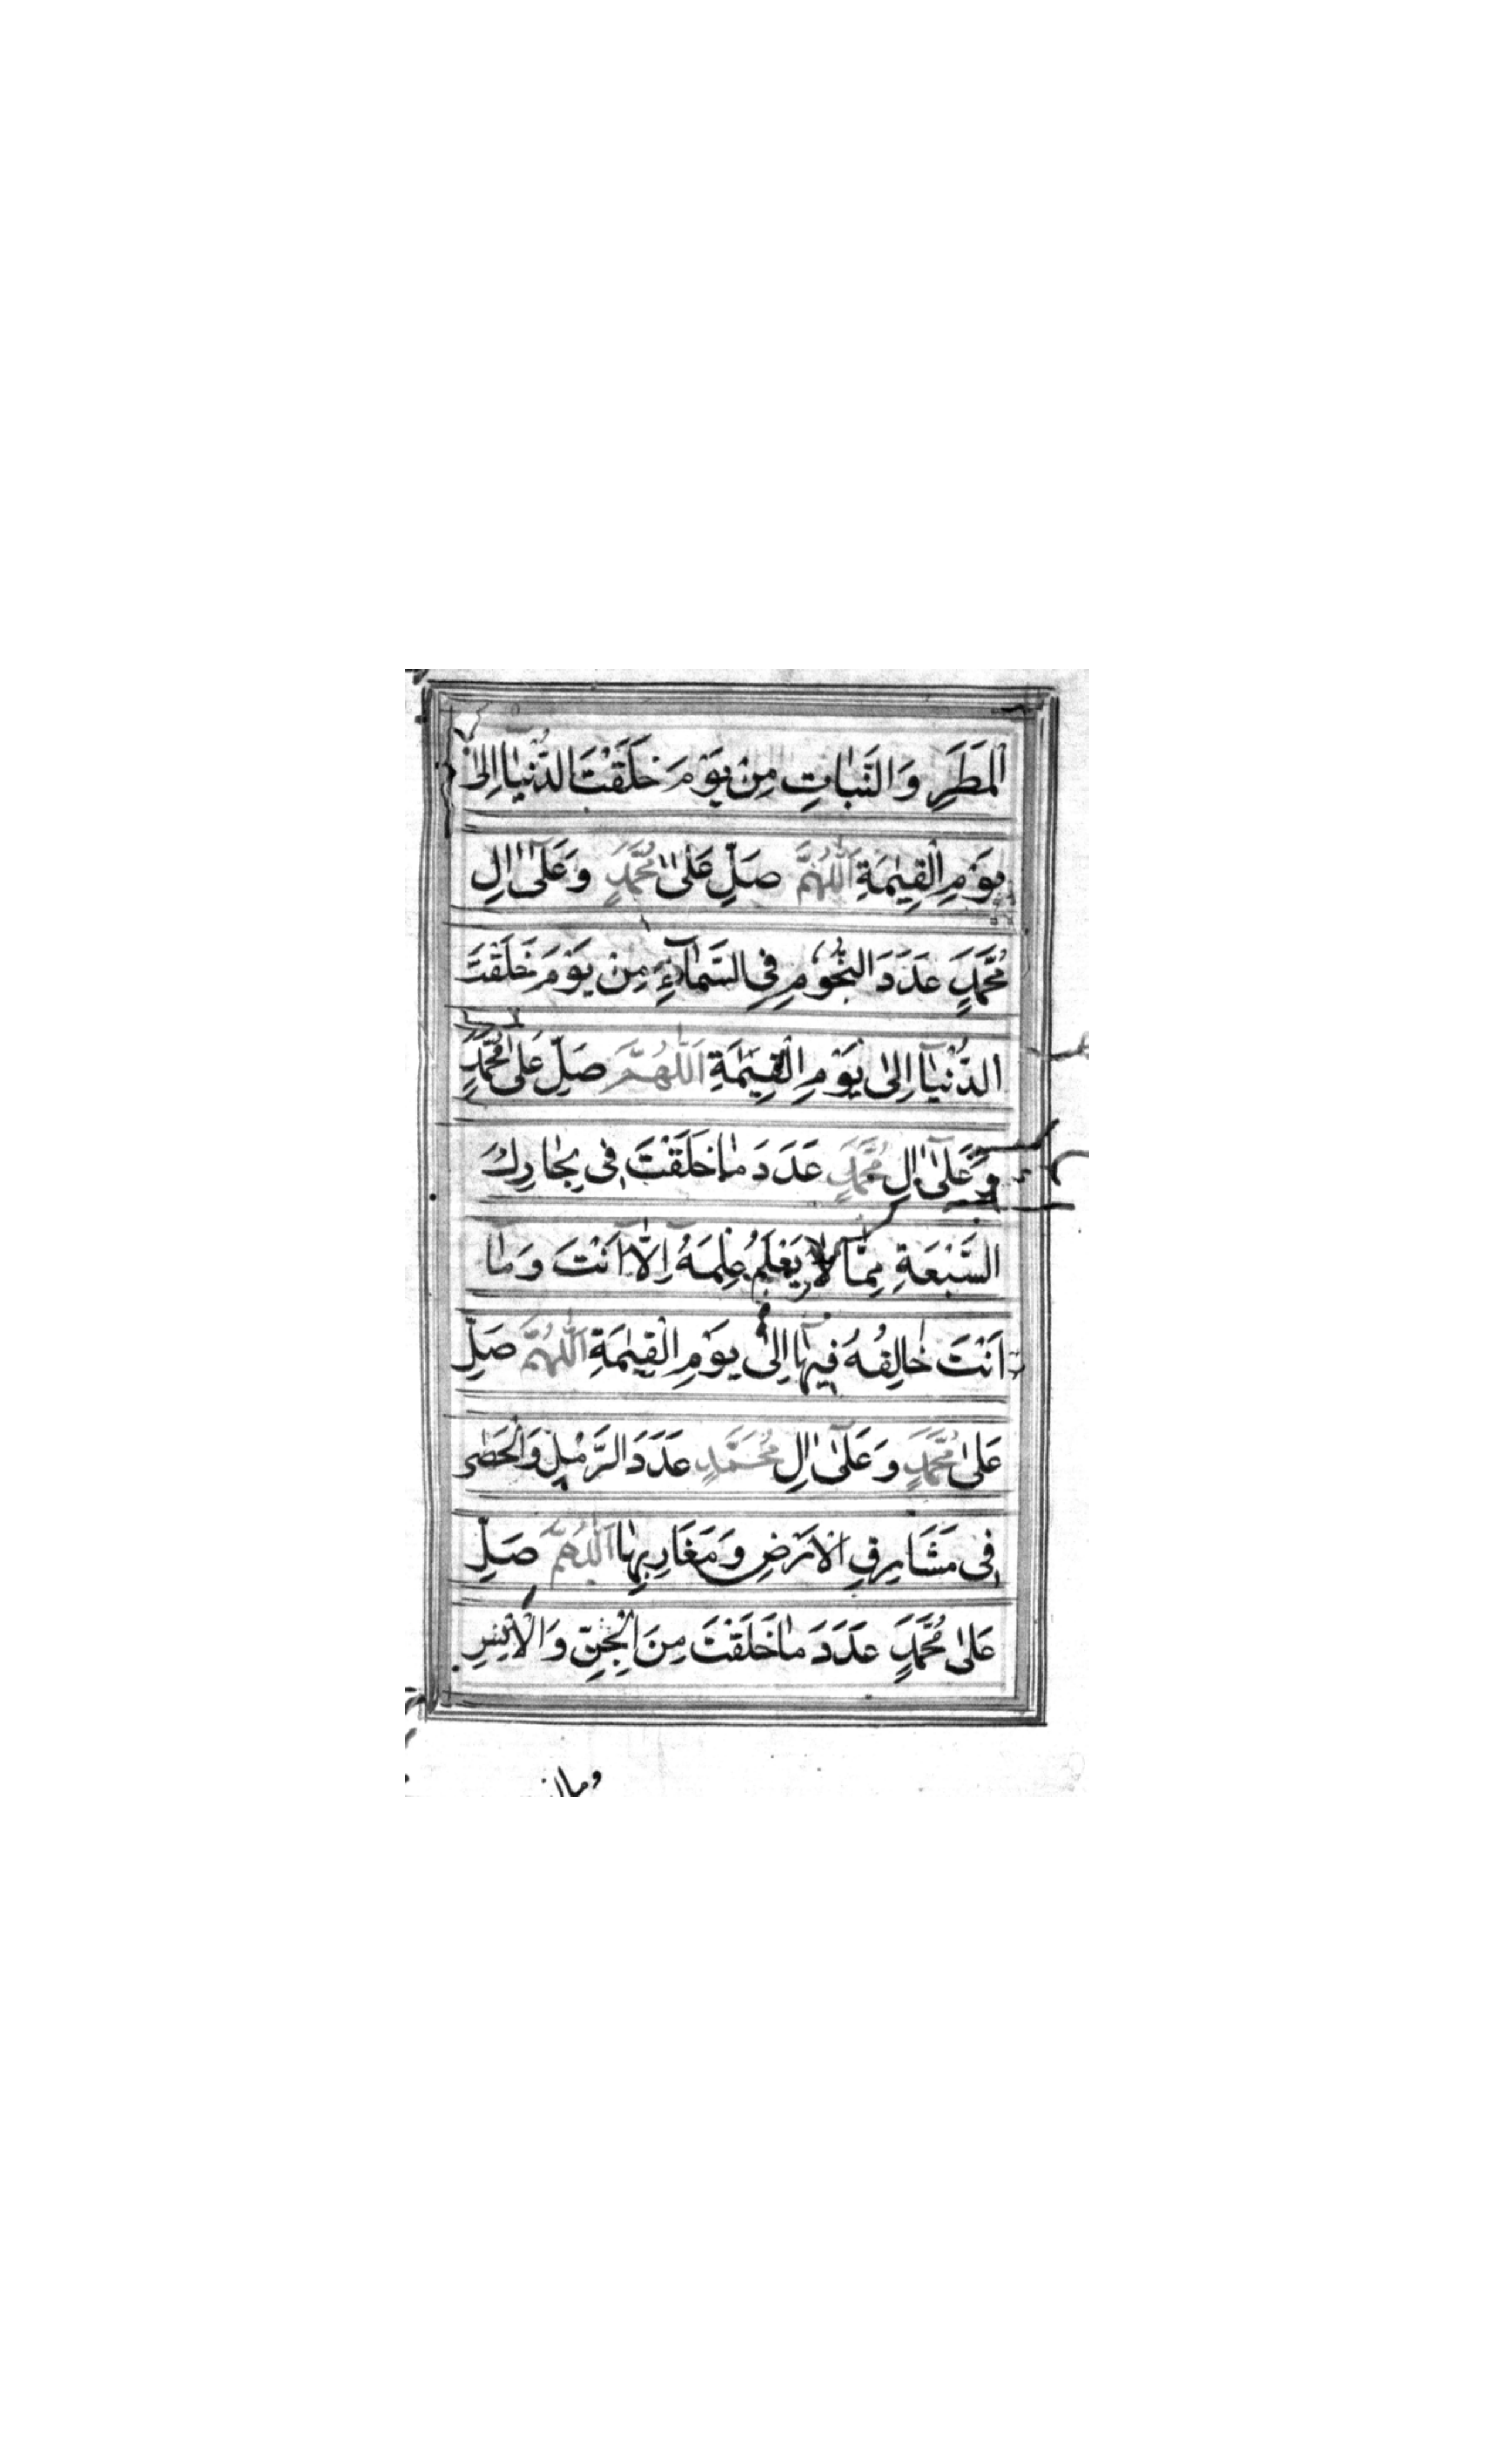 الْمَطَرِ وَالنَّبَاتِ مِنْ يَوْمَ خَلَقْتَ الدُّنْيَا اِلٰى
يَوْمِ الْقِيٰمَةِ اَللّٰهُمَّ صَلِّ عَلٰى مُحَمَّدٍ وَعَلٰٓى اٰلِ
مُحَمَّدٍ عَدَدَ النُّجُوْمِ فِى السَّمَآءِ مِنْ يَوْمَ خَلَقْتَ
الدُّنْيَآ اِلٰى يَوْمِ الْقِيٰمَةِ اَللّٰهُمَّ صَلِّ عَلٰى مُحَمَّدٍ
وَعَلٰٓى اٰلِ مُحَمَّدٍ عَدَدَ مَا خَلَقْتَ فِى بِحَارِكَ
السَّبْعَةِ مِمَّا لَا يَعْلَمُ عِلْمَهُ اِلَّآ اَنْتَ وَمَآ
اَنْتَ خَالِقُهُ فِيْهَآ اِلٰى يَوْمِ الْقِيٰمَةِ اَللّٰهُمَّ صَلِّ
عَلٰى مُحَمَّدٍ وَعَلٰٓى اٰلِ مُحَمَّدٍ عَدَدَ الرَّمْلِ وَالْحَصٰى
فِى مَشَارِقِ الْاَرْضِ وَمَغَارِبِهَا اَللّٰهُمَّ صَلِّ
عَلٰى مُحَمَّدٍ عَدَدَ مَا خَلَقْتَ مِنَ الْجِنِّ وَالْاِنْسِ